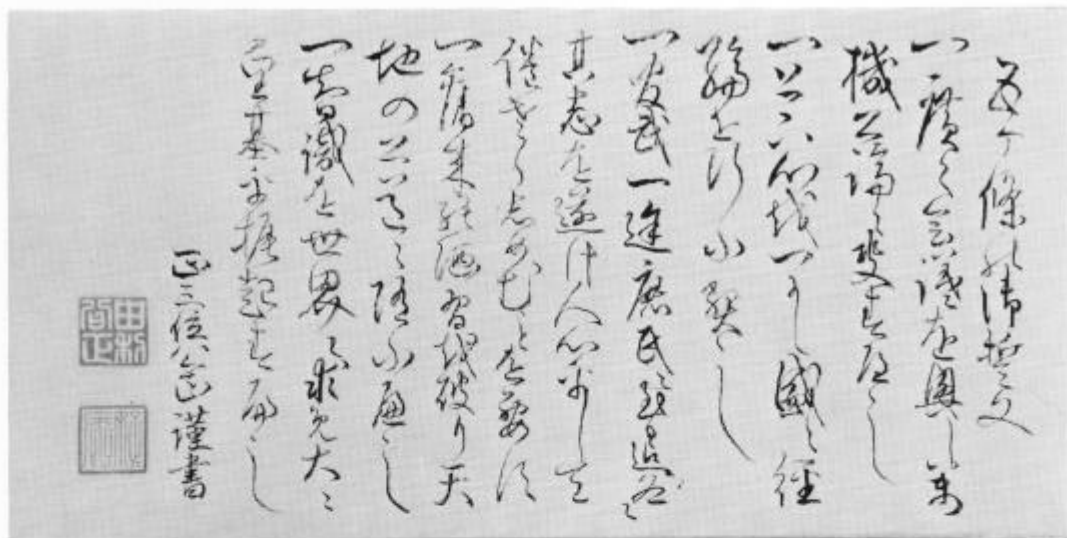 五ケ條の御誓文
一廣く會議を興し萬
機公論に決すへし
一上下心を一にし盛に經
綸を行ふへし
一官武一途庶民に至迄各ゝ
其志を遂け人心をして
倦さらしめむことを要す
一舊来の陋習を破り天
地の公道に随ふへし
一智識を世界に求め大に
皇基を振起すへし
正三位公正謹書
由利公正